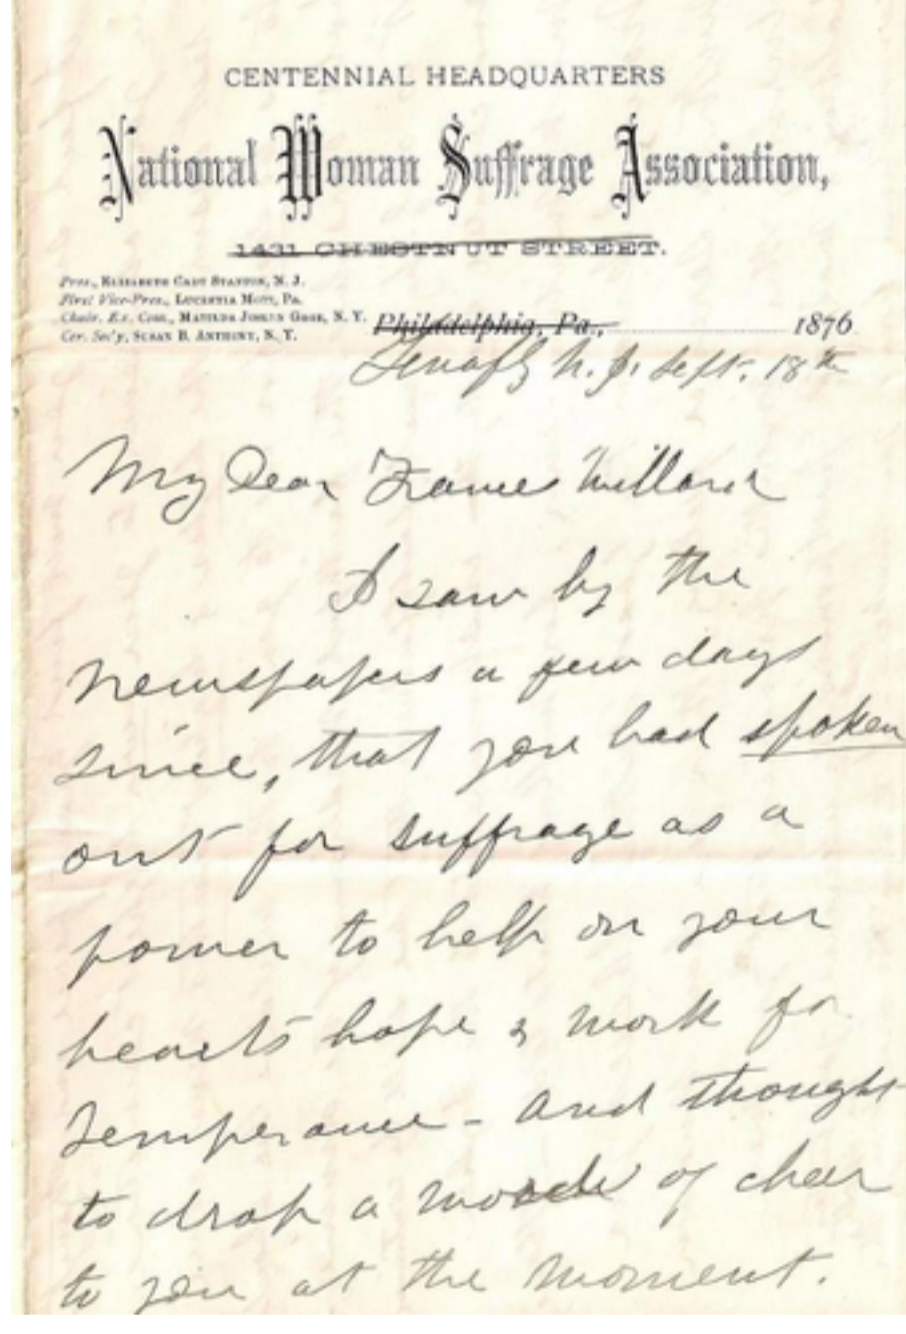 CENTENNIAL HEADQUARTERS
National Woman Suffrage Association,
1431 CHESTNUT STREET.
Pres., ELIZABETH CADY STANTON, N. J.
First Vice-Pres., LUCRETIA MOTT, Pa.
Chair. Ex. Com., MATILDA JOSLYN GAGE, N. Y.
Cor. Sec'y, SUSAN B. ANTHONY, N. Y.
Philadelphia, Pa., 1876
Tenafly N. J. Sept. 18th
My Dear Frances Willard
I saw by the
newspapers a few days
since, that you had spoken
out for suffrage as a
power to help on your
heart's hope & work for
temperance - and thought
to drop a word of cheer
to you at the moment.